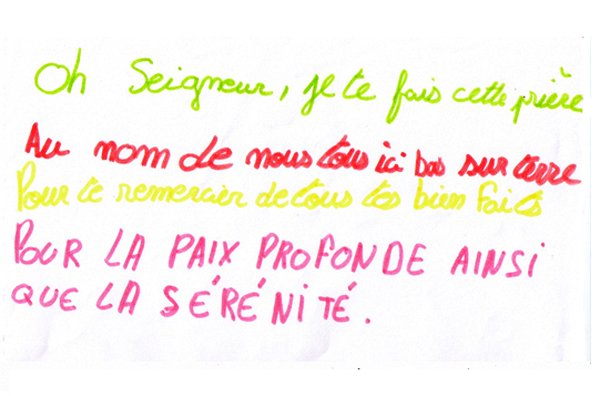 Oh Seigneur, je te fais cette prière
Au nom de nous tous ici bas sur terre
Pour te remercier de tous tes bien faits
POUR LA PAIX PROFONDE AINSI
QUE LA SÉRÉNITÉ.